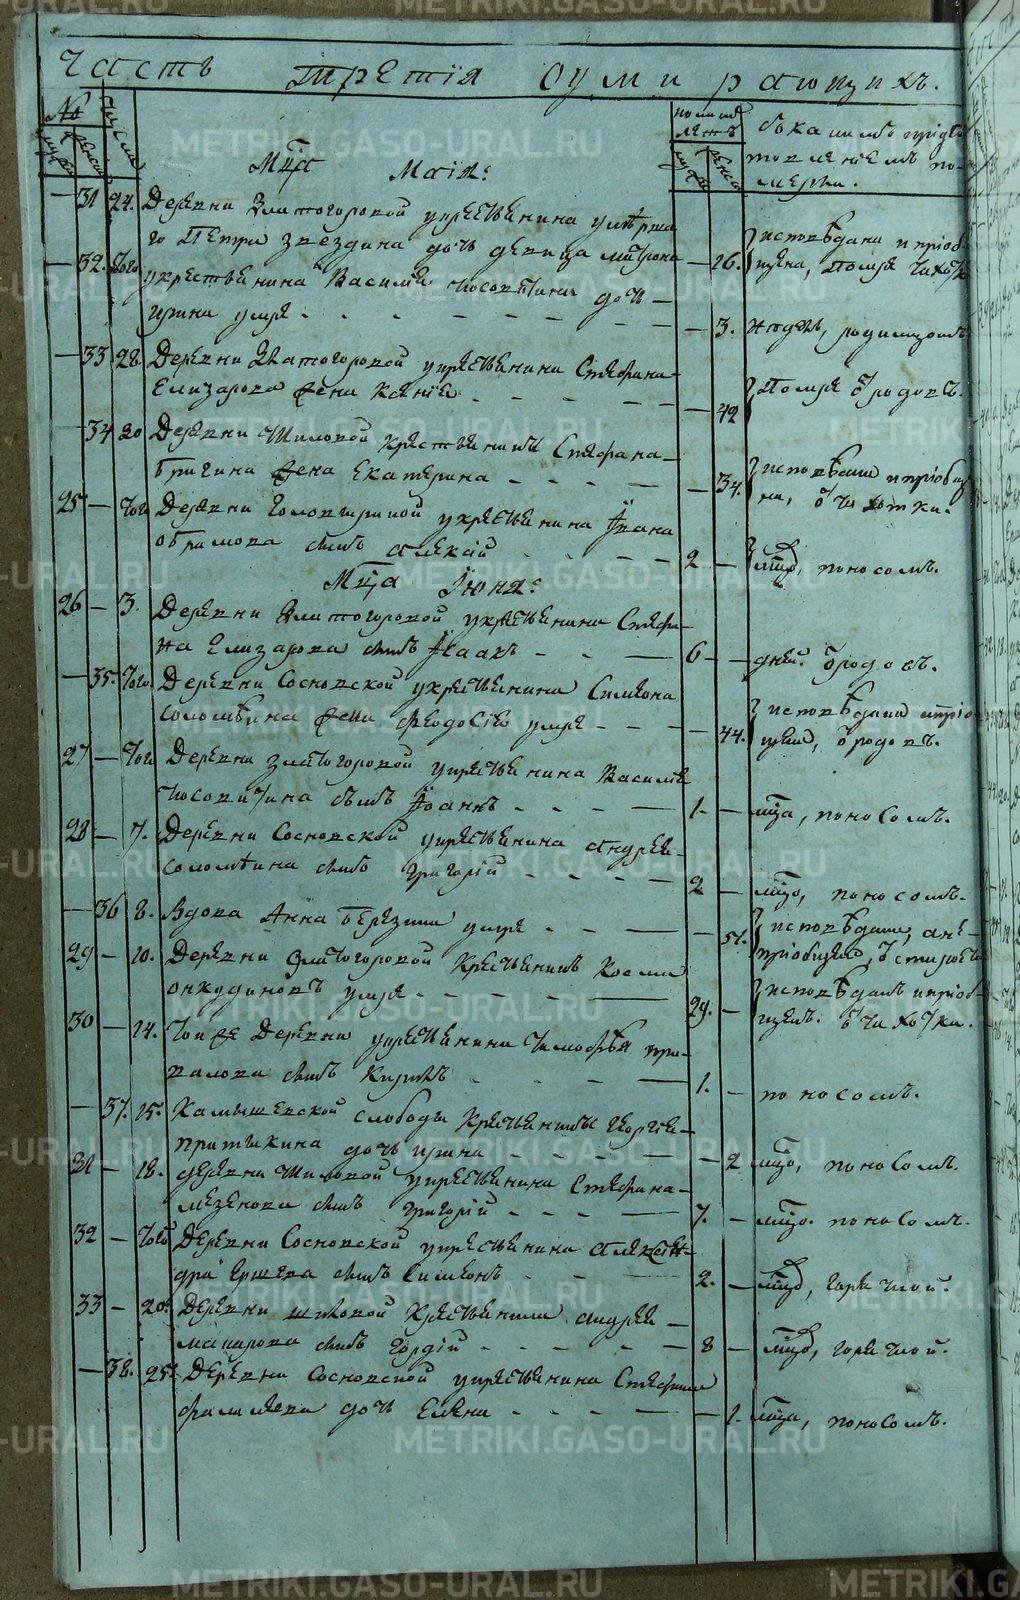 Часть третія о умирающихъ.
№ числа
мужска женска
коликихъ лѣтъ
мужска женска
Мца Маія:
31 24. Деревни Златогоровой у крестьянина умерша
го Петра Звездина дочь девица Матрона 26. исповѣдана и пріоб
щена, помре чахоткою
32. того у крестьянина Василія дочь
ирина умре 3. недели, родимцомъ
33 28. Деревни Златогоровой у крестьянина Стефана
Елизарова жена Ксенія 42 помре отъ родовъ.
34 30 Деревни Шиловой крестьянина Стефана
жена Екатерина 34. исповѣдана и пріобще
на, отъ чахотки.
25 того Деревни Головыриной у крестьянина Іоанна
абрамова сынъ алексій 2 мцо, поносомъ.
Мца Іюня:
26 3. Деревни Златогоровой у крестьянина Стефа
на Елизарова сынъ Ісаакъ 6 дней. отъ родовъ.
35. того Деревни Сосновской у крестьянина Симеона
соломѣина жена феодосія умре 44. исповѣдана и пріоб
щена, отъ родовъ.
27 того Деревни златогоровой у крестьянина Василія
сынъ Іоаннъ 1. мца, поносомъ.
28 7. Деревни Сосновской у крестьянина андрея
соломѣина сынъ григорій 2 мцо, поносомъ.
36 8. Вдова Анна березина умре 51. исповѣдана, а не
пріобщена, отъ старости
29 10. Деревни Златогоровой крестьянинъ Косма
анкудиновъ умре 29. исповѣданъ и пріоб
щенъ. отъ чахотки.
30 14. Той же Деревни у крестьянина Тимофея при
валова сынъ Кирилъ 1. поносомъ.
37. 15. Камышевской слободы крестьянина Георгія
притыкина дочь ирина 2 мцо, поносомъ.
31 18. деревни Шиловой у крестьянина Стефана
мезенова сынъ григорій 7. мцо. поносомъ.
32 того Деревни Сосновской у крестьянина алексан
дра Ершева сынъ Симеонъ 2. мцо, горячкой.
33 20. Деревни шиловой крестьянина андрея
макарова сынъ гордій 8 мцо, горячкой.
38. 25. Деревни Сосновской у крестьянина Стефана
фалалеева дочь Елена 1. мца, поносомъ.
METRIKI.GASO-URAL.RU